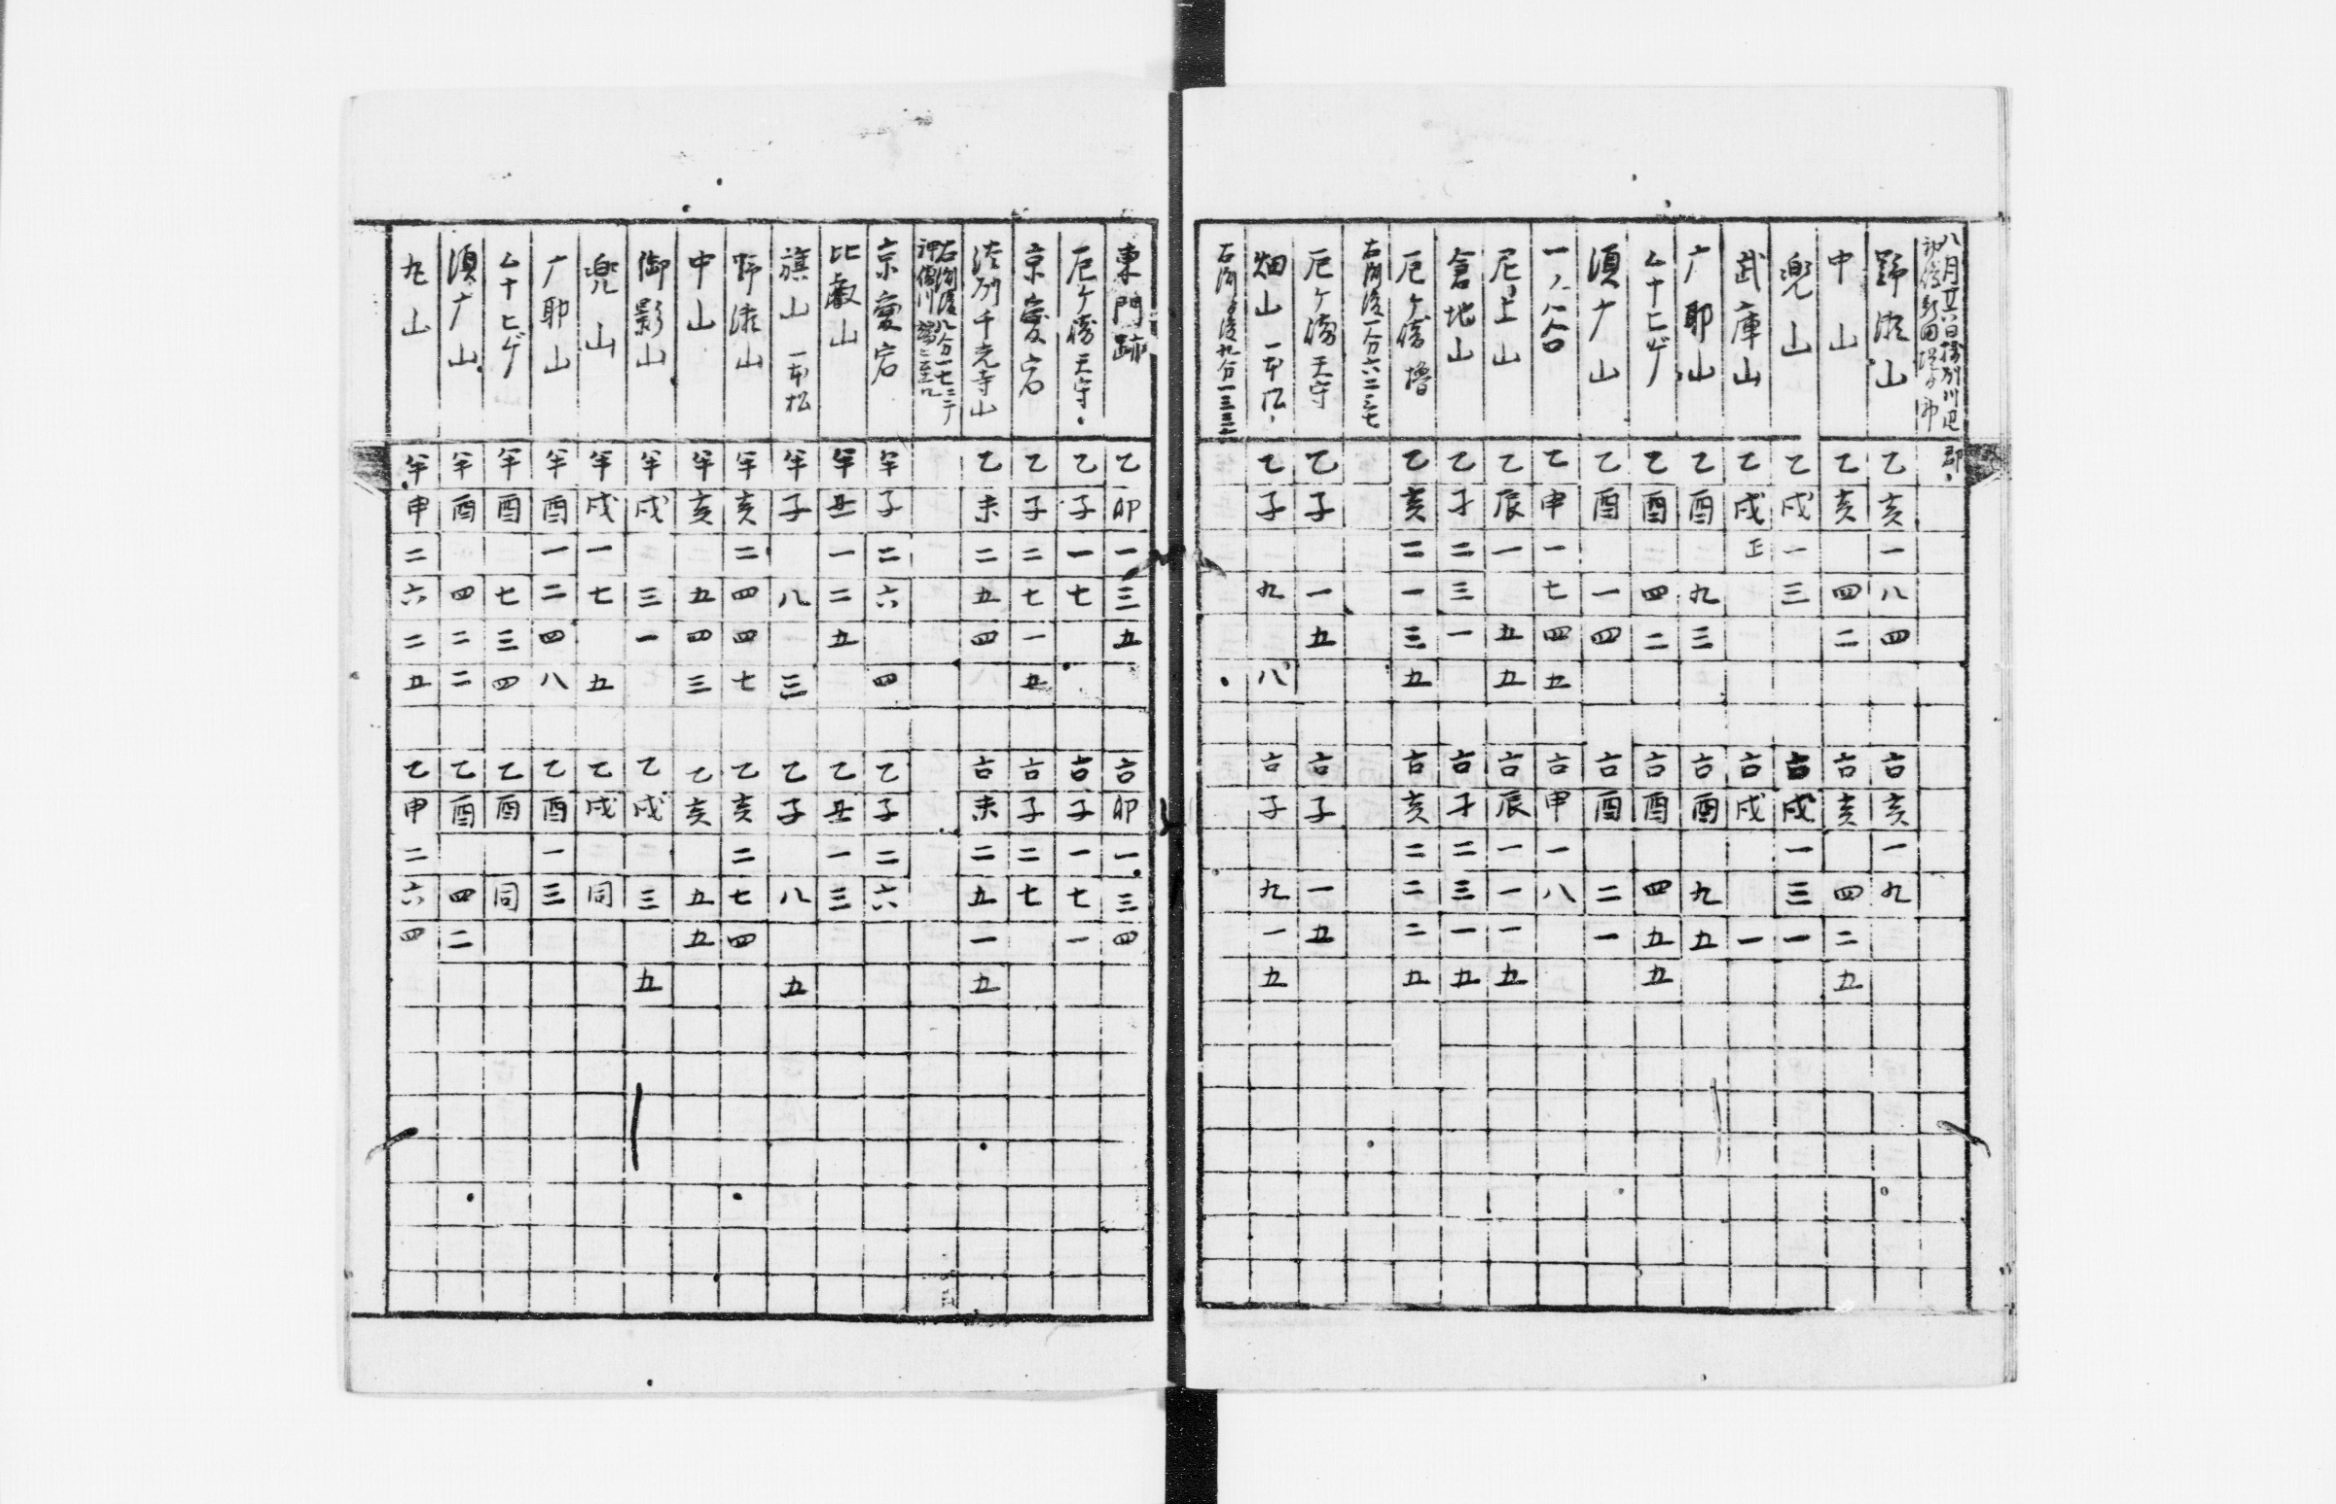 八月廿六日摂州川辺郡
野漆山 乙亥 一八四 古亥 一九
中山 乙亥 四二 古亥 四二五
兜山 乙戌 一三 古戌 一三一
武庫山 乙戌 正 古戌 一
广耶山 乙酉 九三 古酉 九五
乙酉 四二 古酉 四五五
須广山 乙酉 一四 古酉 二一
一ノ谷 乙申 一七四五 古申 一八
尼上山 乙辰 一五五 古辰 一一一五
倉地山 乙子 二三一 古子 二三一五
尼ケ崎櫓 乙亥 二一三五 古亥 二二二五
尼ケ崎天守 乙子 一五 古子 一五
畑山一本松 乙子 九八 古子 九一五
東門跡 乙卯 一三五 古卯 一三四
尼ケ崎天守 乙子 一七 古子 一七一
京愛宕 乙子 二七一五 古子 二七
千光寺山 乙未 二五四 古未 二五一五
京愛宕 子 二六四 乙子 二六
比叡山 丑 一二五 乙丑 一三
旗山一本松 子 八三 乙子 八五
野漆山 亥 二四四七 乙亥 二七四
中山 亥 五四三 乙亥 五五
御影山 戌 三一 乙戌 三五
兜山 戌 一七五 乙戌 同
广耶山 酉 一二四八 乙酉 一三
酉 七三四 乙酉 同
須广山 酉 四二二 乙酉 四二
丸山 申 二六二五 乙申 二六四